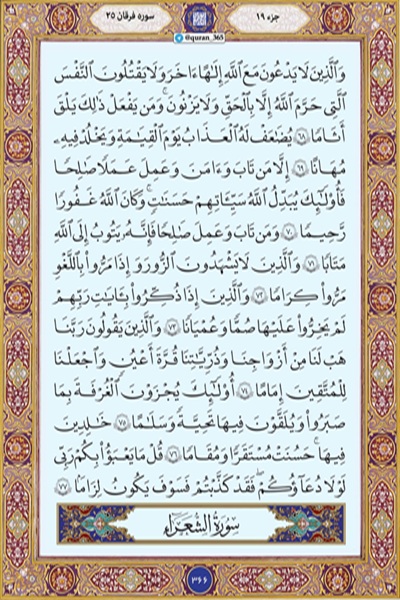 جزء ۱۹
@quran_365
سوره فرقان ۲۵
وَٱلَّذِينَ لَا يَدْعُونَ مَعَ ٱللَّهِ إِلَٰهًا ءَاخَرَ وَلَا يَقْتُلُونَ ٱلنَّفْسَ
ٱلَّتِى حَرَّمَ ٱللَّهُ إِلَّا بِٱلْحَقِّ وَلَا يَزْنُونَ ۚ وَمَن يَفْعَلْ ذَٰلِكَ يَلْقَ
أَثَامًا ۝٦٨ يُضَٰعَفْ لَهُ ٱلْعَذَابُ يَوْمَ ٱلْقِيَٰمَةِ وَيَخْلُدْ فِيهِۦ
مُهَانًا ۝٦٩ إِلَّا مَن تَابَ وَءَامَنَ وَعَمِلَ عَمَلًا صَٰلِحًا
فَأُو۟لَٰٓئِكَ يُبَدِّلُ ٱللَّهُ سَيِّـَٔاتِهِمْ حَسَنَٰتٍ ۗ وَكَانَ ٱللَّهُ غَفُورًا
رَّحِيمًا ۝٧٠ وَمَن تَابَ وَعَمِلَ صَٰلِحًا فَإِنَّهُۥ يَتُوبُ إِلَى ٱللَّهِ
مَتَابًا ۝٧١ وَٱلَّذِينَ لَا يَشْهَدُونَ ٱلزُّورَ وَإِذَا مَرُّوا۟ بِٱللَّغْوِ
مَرُّوا۟ كِرَامًا ۝٧٢ وَٱلَّذِينَ إِذَا ذُكِّرُوا۟ بِـَٔايَٰتِ رَبِّهِمْ
لَمْ يَخِرُّوا۟ عَلَيْهَا صُمًّا وَعُمْيَانًا ۝٧٣ وَٱلَّذِينَ يَقُولُونَ رَبَّنَا
هَبْ لَنَا مِنْ أَزْوَٰجِنَا وَذُرِّيَّٰتِنَا قُرَّةَ أَعْيُنٍ وَٱجْعَلْنَا
لِلْمُتَّقِينَ إِمَامًا ۝٧٤ أُو۟لَٰٓئِكَ يُجْزَوْنَ ٱلْغُرْفَةَ بِمَا
صَبَرُوا۟ وَيُلَقَّوْنَ فِيهَا تَحِيَّةً وَسَلَٰمًا ۝٧٥ خَٰلِدِينَ
فِيهَا ۚ حَسُنَتْ مُسْتَقَرًّا وَمُقَامًا ۝٧٦ قُلْ مَا يَعْبَؤُا۟ بِكُمْ رَبِّى
لَوْلَا دُعَآؤُكُمْ ۖ فَقَدْ كَذَّبْتُمْ فَسَوْفَ يَكُونُ لِزَامًۢا ۝٧٧
سُورَةُ الشُّعَرَاءِ
۳۶۶